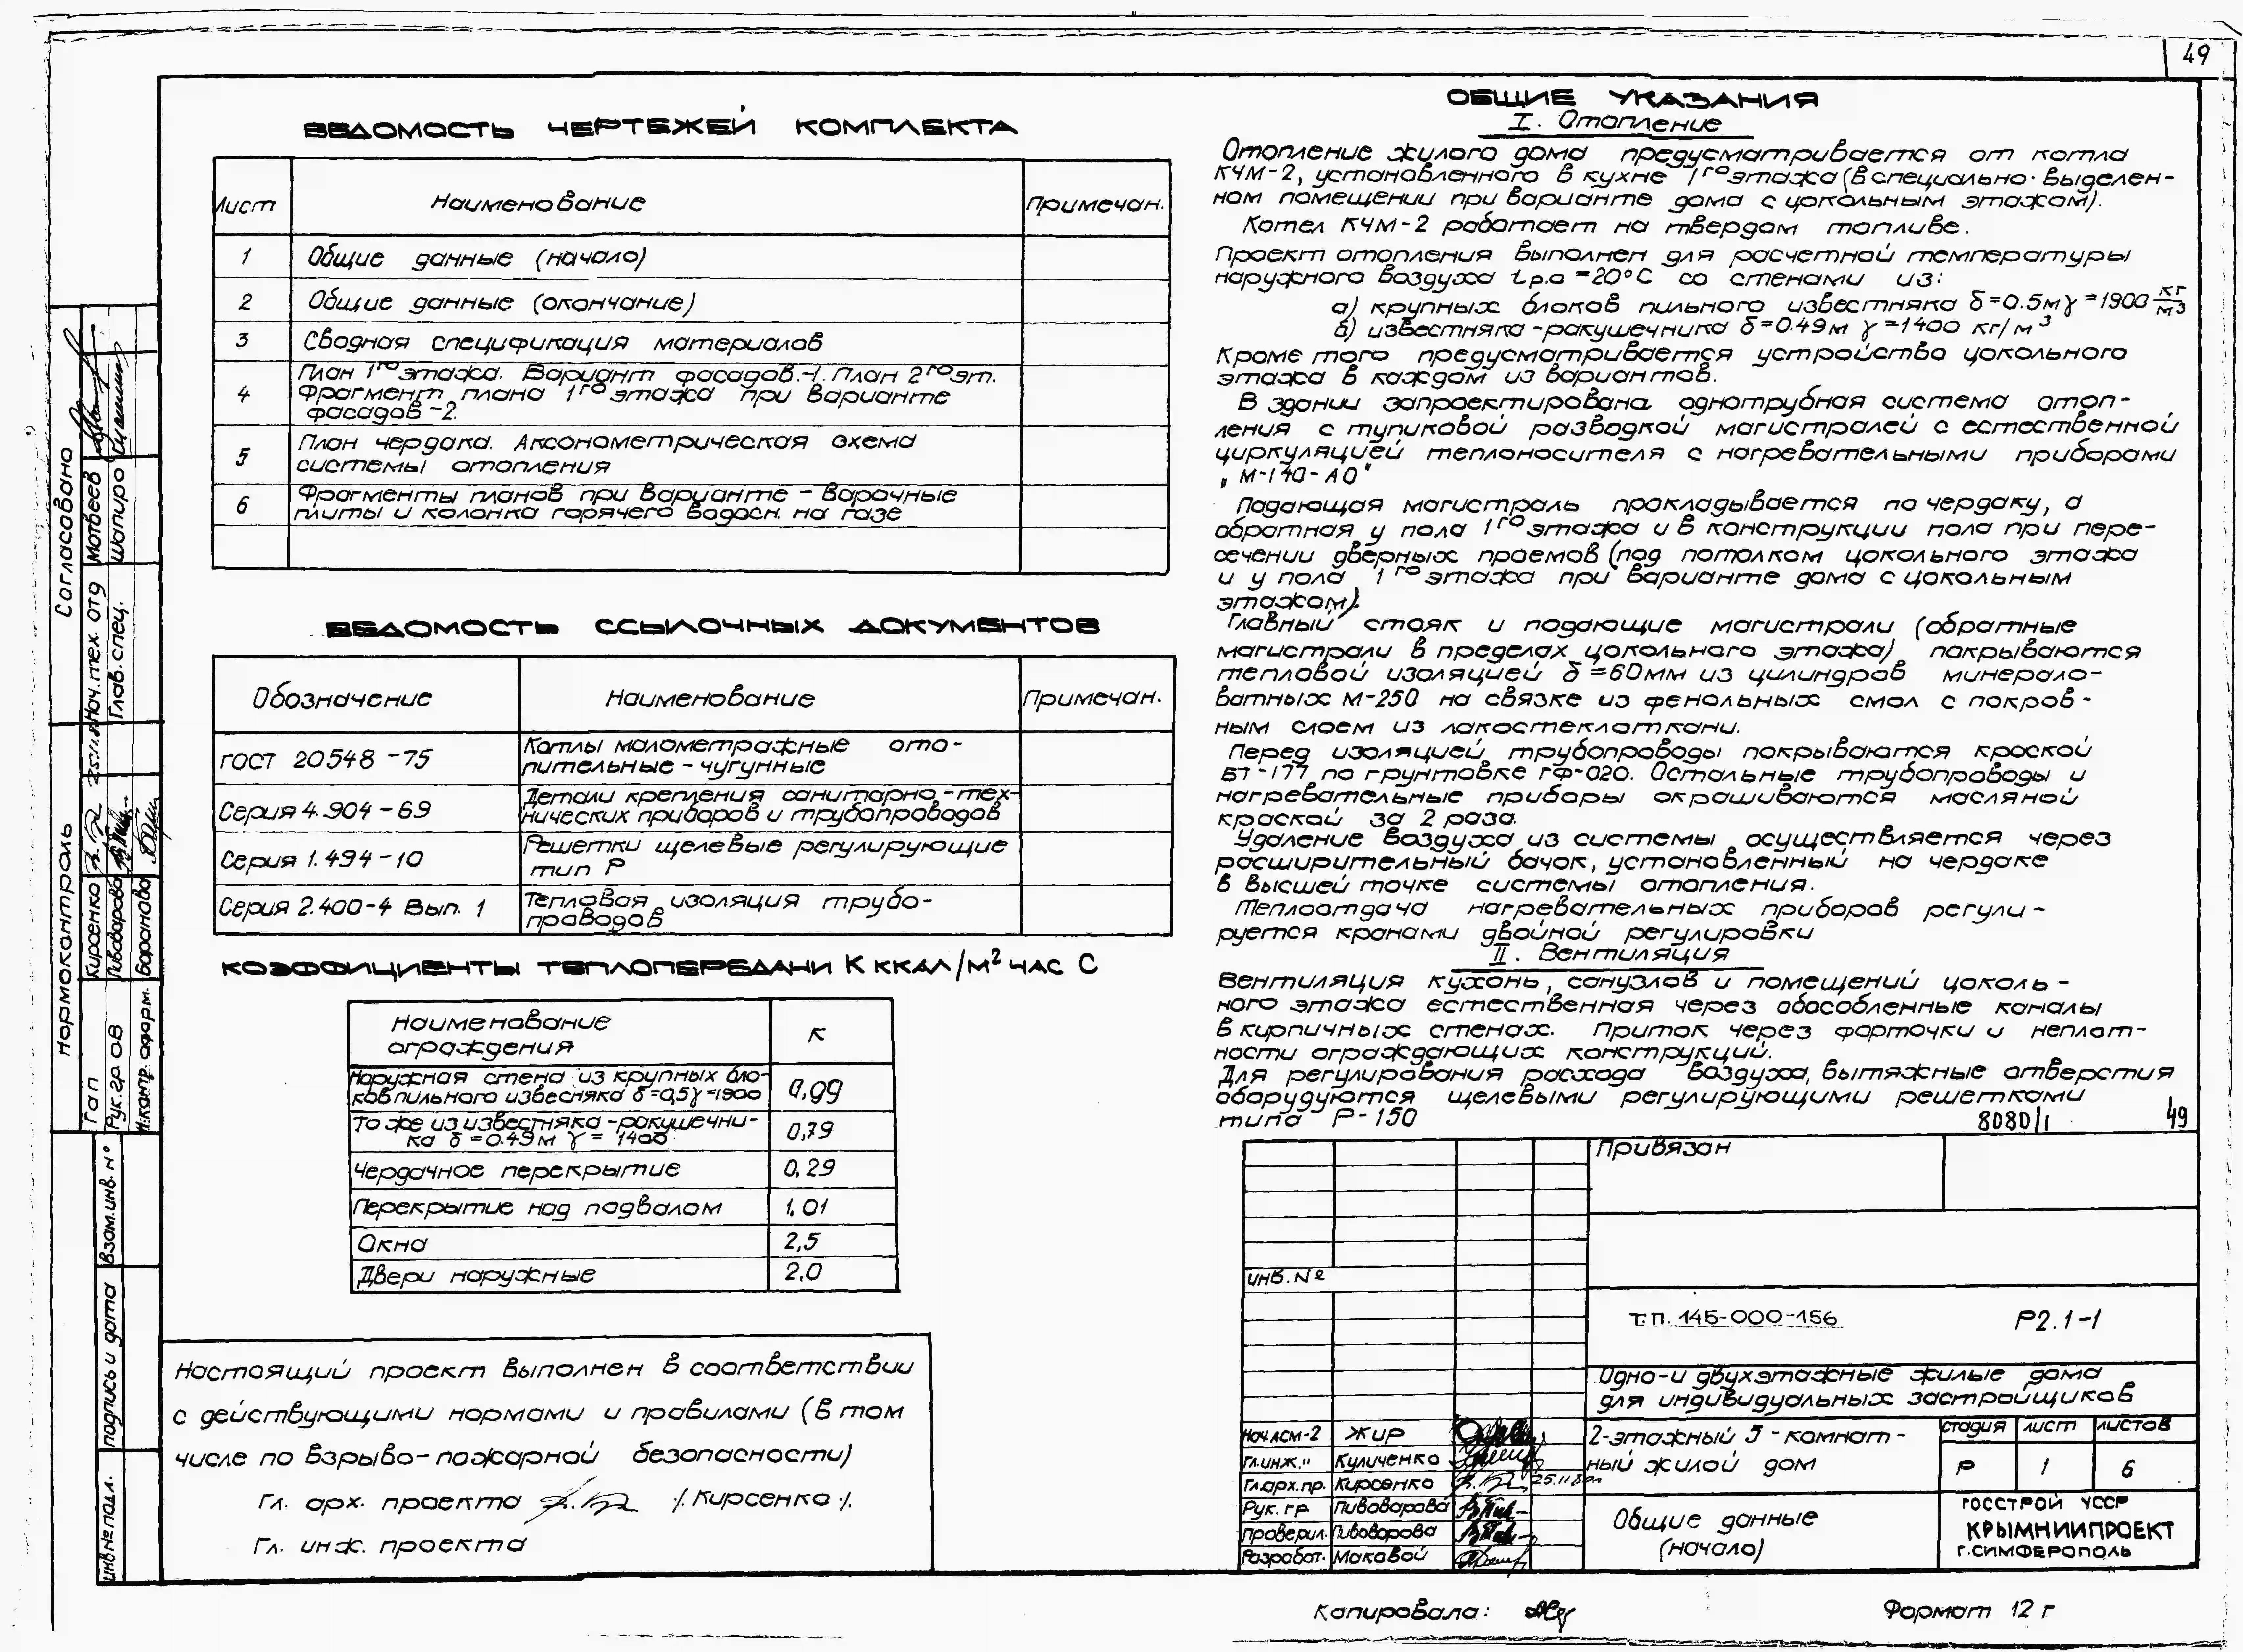 49
ВЕДОМОСТЬ ЧЕРТЕЖЕЙ КОМПЛЕКТА
Лист Наименование Примечан.
1 Общие данные (начало)
2 Общие данные (окончание)
3 Сводная спецификация материалов
4 План 1го этажа. Вариант фасадов-1. План 2го эт.
Фрагмент плана 1го этажа при варианте
фасадов-2.
5 План чердака. Аксонометрическая схема
системы отопления
6 Фрагменты планов при варианте - варочные
плиты и колонка горячего водосн. на газе
ВЕДОМОСТЬ ССЫЛОЧНЫХ ДОКУМЕНТОВ
Обозначение Наименование Примечан.
ГОСТ 20548-75 Котлы малометражные ото-
пительные - чугунные
Серия 4.904-69 Детали крепления санитарно-тех-
нических приборов и трубопроводов
Серия 1.494-10 Решетки щелевые регулирующие
тип Р
Серия 2.400-4 Вып. 1 Тепловая изоляция трубо-
проводов
КОЭФФИЦИЕНТЫ ТЕПЛОПЕРЕДАЧИ К ККАЛ/М² ЧАС С
Наименование
ограждения К
Наружная стена из крупных бло-
ков пильного извесняка δ=0,5 γ=1900 0,99
То же из известняка-ракушечни-
ка δ=0.49м γ=1400 0,79
Чердачное перекрытие 0,29
Перекрытие над подвалом 1,01
Окна 2,5
Двери наружные 2,0
Настоящий проект выполнен в соответствии
с действующими нормами и правилами (в том
числе по взрыво-пожарной безопасности)
Гл. арх. проекта /Кирсенко/.
Гл. инж. проекта
ОБЩИЕ УКАЗАНИЯ
I. Отопление
Отопление жилого дома предусматривается от котла
КЧМ-2, установленного в кухне 1го этажа (в специально выделен-
ном помещении при варианте дома с цокольным этажом).
Котел КЧМ-2 работает на твердом топливе.
Проект отопления выполнен для расчетной температуры
наружного воздуха tр.о =20°С со стенами из:
а) крупных блоков пильного известняка δ=0.5м γ=1900 кг/м3
б) известняка-ракушечника δ=0.49м γ=1400 кг/м3
Кроме того предусматривается устройство цокольного
этажа в каждом из вариантов.
В здании запроектирована однотрубная система отоп-
ления с тупиковой разводкой магистралей с естественной
циркуляцией теплоносителя с нагревательными приборами
„М-140-АО"
Подающая магистраль прокладывается по чердаку, а
обратная у пола 1го этажа и в конструкции пола при пере-
сечении дверных проемов (под потолком цокольного этажа
и у пола 1го этажа при варианте дома с цокольным
этажом).
Главный стояк и подающие магистрали (обратные
магистрали в пределах цокольного этажа) покрываются
тепловой изоляцией δ=60мм из цилиндров минерало-
ватных М-250 на связке из фенольных смол с покров-
ным слоем из лакостеклоткани.
Перед изоляцией трубопроводы покрываются краской
БТ-177 по грунтовке ГФ-020. Остальные трубопроводы и
нагревательные приборы окрашиваются масляной
краской за 2 раза.
Удаление воздуха из системы осуществляется через
расширительный бачок, установленный на чердаке
в высшей точке системы отопления.
Теплоотдача нагревательных приборов регули-
руется кранами двойной регулировки
II. Вентиляция
Вентиляция кухонь, санузлов и помещений цоколь-
ного этажа естественная через обособленные каналы
в кирпичных стенах. Приток через форточки и неплот-
ности ограждающих конструкций.
Для регулирования расхода воздуха, вытяжные отверстия
оборудуются щелевыми регулирующими решетками
типа Р-150
8080/1 49
Привязан
инв. №
Т.П. 145-000-156 Р2.1-1
Одно-и двухэтажные жилые дома
для индивидуальных застройщиков
Нач.АСМ-2 Жир
Гл.инж." Куличенко
Гл.арх.пр. Кирсенко
Рук. гр Пивоварова
Проверил. Пивоварова
Разработ. Маковой
2-этажный 5-комнат-
ный жилой дом
стадия лист листов
Р 1 6
Общие данные
(начало)
ГОССТРОЙ УССР
КРЫМНИИПРОЕКТ
Г.СИМФЕРОПОЛЬ
Копировала: Формат 12 г
Согласовано
Нач. тех. отд Матвеев
Глав. спец. Шапиро
Нормоконтроль
Гап Кирсенко
Рук. гр. ОВ Пивоварова
Н.контр. оформ. Баранова
Взам. инв. №
подпись и дата
инв № подл.